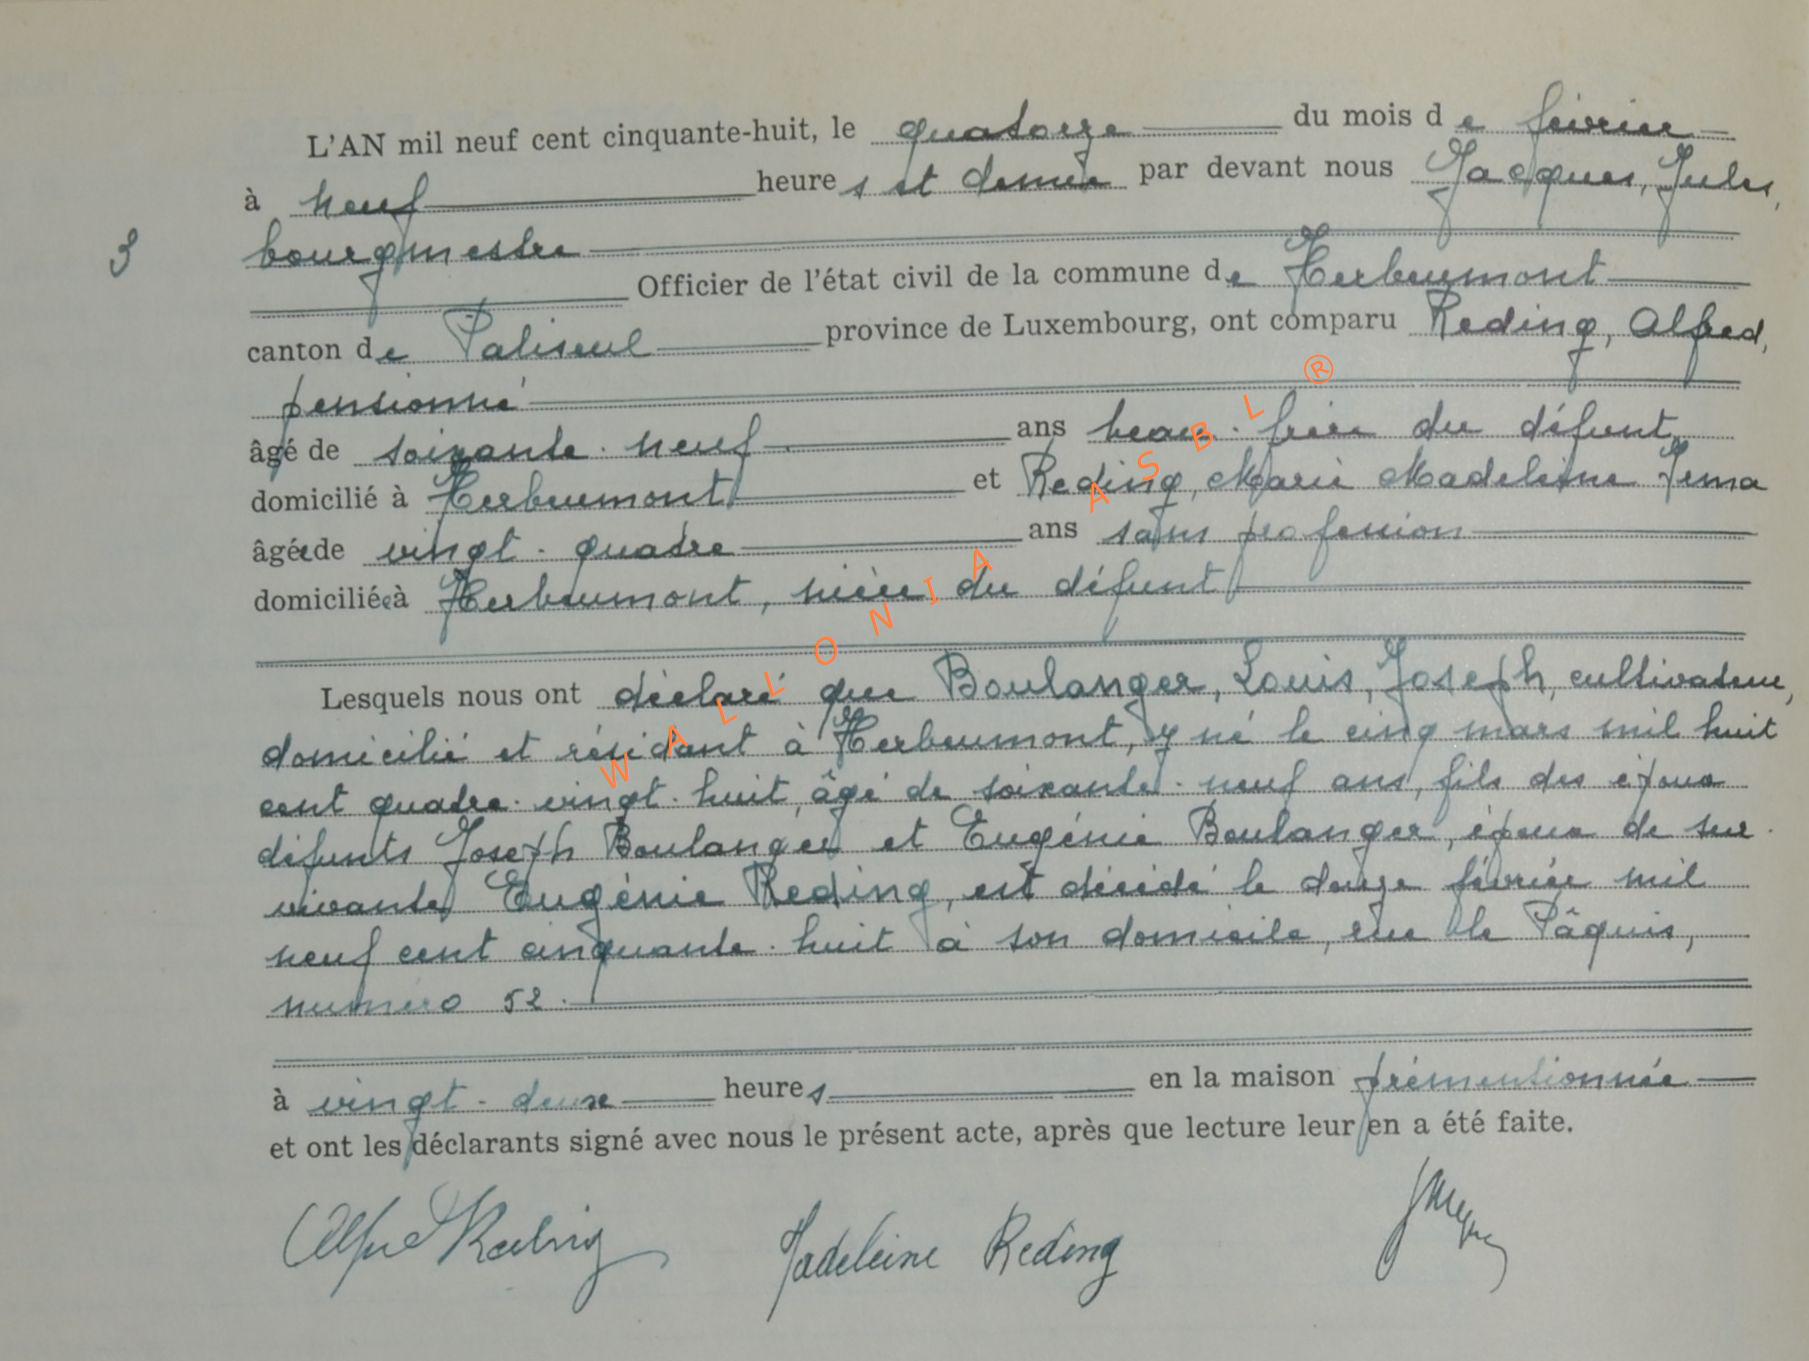 L'AN mil neuf cent cinquante-huit, le quatorze du mois de février
à neuf heures et demie par devant nous Jacques, Jules,
3 bourgmestre
Officier de l'état civil de la commune de Herbeumont
canton de Paliseul province de Luxembourg, ont comparu Reding, Alfred,
pensionné
âgé de soixante-neuf ans beau-frère du défunt
domicilié à Herbeumont et Reding, Marie Madeleine Irma
âgée de vingt-quatre ans sans profession
domiciliée à Herbeumont, nièce du défunt
Lesquels nous ont déclaré que Boulanger, Louis, Joseph, cultivateur,
domicilié et résidant à Herbeumont, y né le cinq mars mil huit
cent quatre-vingt-huit, âgé de soixante-neuf ans, fils des époux
défunts Joseph Boulanger et Eugénie Boulanger, époux de sur-
vivante Eugénie Reding, est décédé le douze février mil
neuf cent cinquante-huit à son domicile, rue le Pâquis,
numéro 52.
à vingt-deux heures en la maison prémentionnée
et ont les déclarants signé avec nous le présent acte, après que lecture leur en a été faite.
Alfred Reding Madeleine Reding
WALLONIA ASBL ®